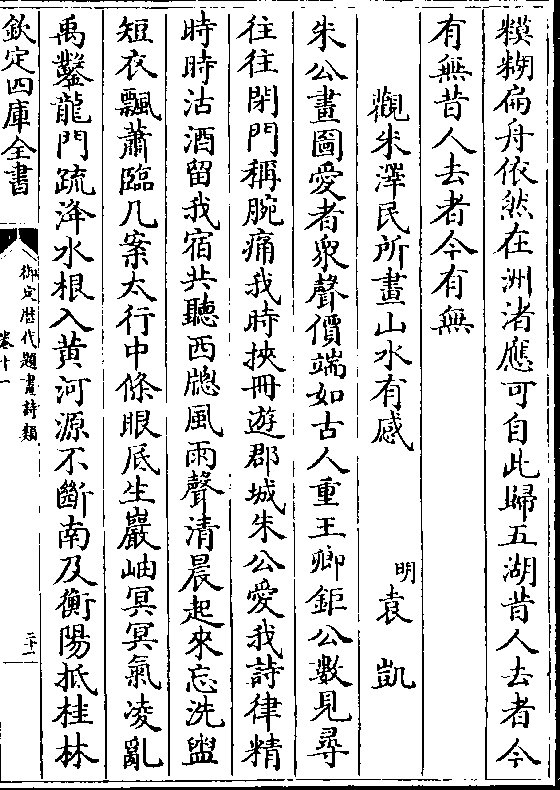 糢糊扁舟依然在洲渚應可自此歸五湖昔人去者今
有無昔人去者今有無
觀朱澤民所畫山水有感
明袁凱
朱公畫圖愛者衆聲價端如古人重王卿鉅公數見尋
往往閉門稱腕痛我時挾冊遊郡城朱公愛我詩律精
時時沽酒留我宿共聽西牕風雨聲清晨起來忘洗盥
短衣飄蕭臨几案太行中條眼底生巖岫冥冥氣凌亂
禹鑿龍門疏洚水根入黄河源不斷南及衡陽抵桂林
欽定四庫全書
御定歴代題畫詩類
卷十一
二十二